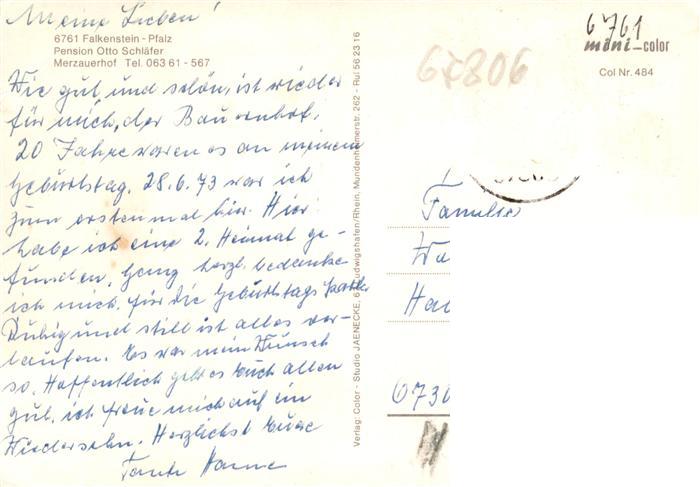 Meine Lieben!
6761 Falkenstein - Pfalz
Pension Otto Schläfer
Merzauerhof Tel. 063 61 - 567
Wie gut und schön, ist wieder
für mich, der Bauernhof.
20 Jahre waren es an meinem
Geburtstag. 28.6.73 war ich
zum erstenmal hier. Hier
habe ich eine 2. Heimat ge-
funden. Ganz herzl. bedanke
ich mich für die Geburtstags
Ruhig und still ist alles ver-
laufen. Es war mein Wunsch
so. Hoffentlich geht es Euch allen
gut, ich freue mich auf ein
Wiedersehn. Herzlichst Eure
Tante
Verlag: Color - Studio JAENECKE, 67 Ludwigshafen/Rhein, Mundenheimerstr. 262 - Ruf 56 23 16
6761
mini-color
Col Nr. 484
67806
Familie
Wa
Ha
6730